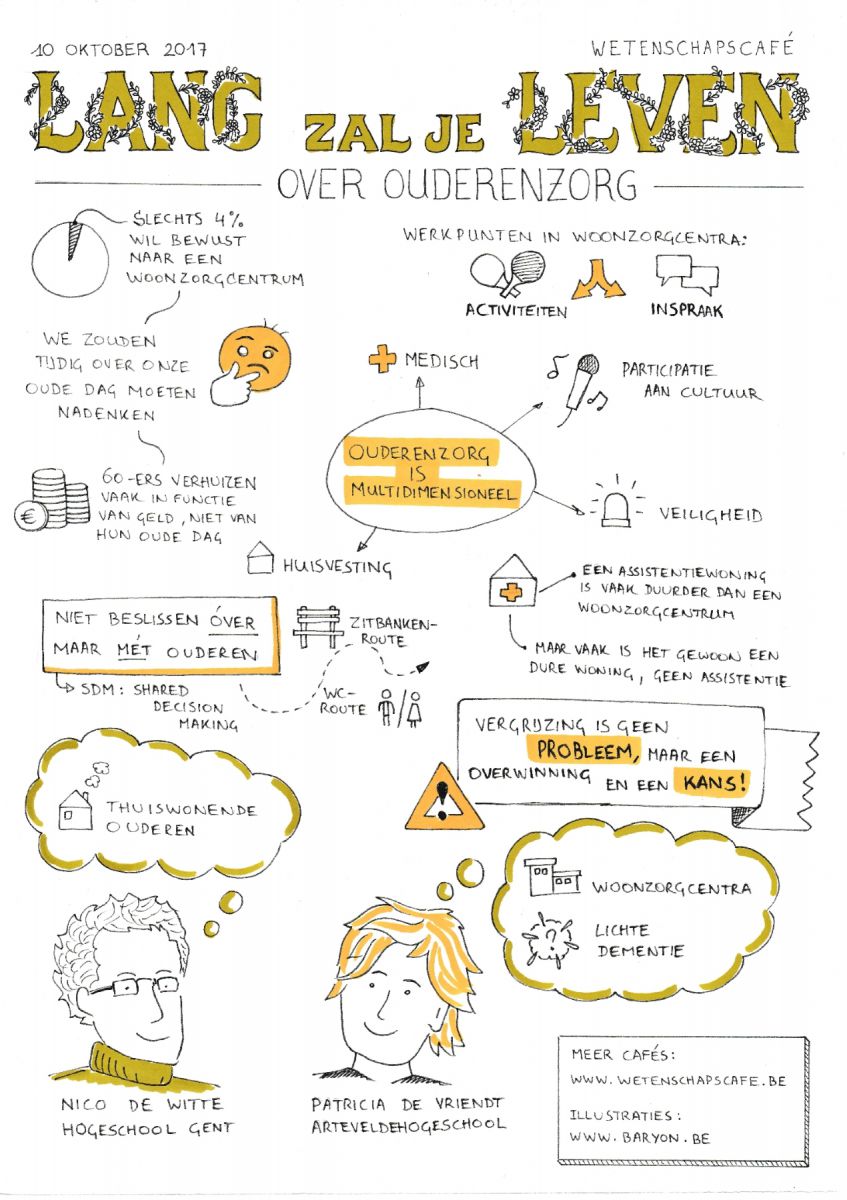 10 OKTOBER 2017
WETENSCHAPSCAFÉ
LANG ZAL JE LEVEN
OVER OUDERENZORG
SLECHTS 4%
WIL BEWUST
NAAR EEN
WOONZORGCENTRUM
WERKPUNTEN IN WOONZORGCENTRA:
ACTIVITEITEN
INSPRAAK
WE ZOUDEN
TIJDIG OVER ONZE
OUDE DAG MOETEN
NADENKEN
MEDISCH
PARTICIPATIE
AAN CULTUUR
OUDERENZORG
IS
MULTIDIMENSIONEEL
€
60-ERS VERHUIZEN
VAAK IN FUNCTIE
VAN GELD, NIET VAN
HUN OUDE DAG
VEILIGHEID
HUISVESTING
EEN ASSISTENTIEWONING
IS VAAK DUURDER DAN EEN
WOONZORGCENTRUM
MAAR VAAK IS HET GEWOON EEN
DURE WONING, GEEN ASSISTENTIE
NIET BESLISSEN ÓVER
MAAR MÉT OUDEREN
SDM: SHARED
DECISION
MAKING
ZITBANKEN-
ROUTE
WC-
ROUTE
VERGRIJZING IS GEEN
PROBLEEM, MAAR EEN
OVERWINNING EN EEN KANS!
!
THUISWONENDE
OUDEREN
WOONZORGCENTRA
?
LICHTE
DEMENTIE
NICO DE WITTE
HOGESCHOOL GENT
PATRICIA DE VRIENDT
ARTEVELDEHOGESCHOOL
MEER CAFÉS:
WWW.WETENSCHAPSCAFE.BE
ILLUSTRATIES:
WWW.BARYON.BE